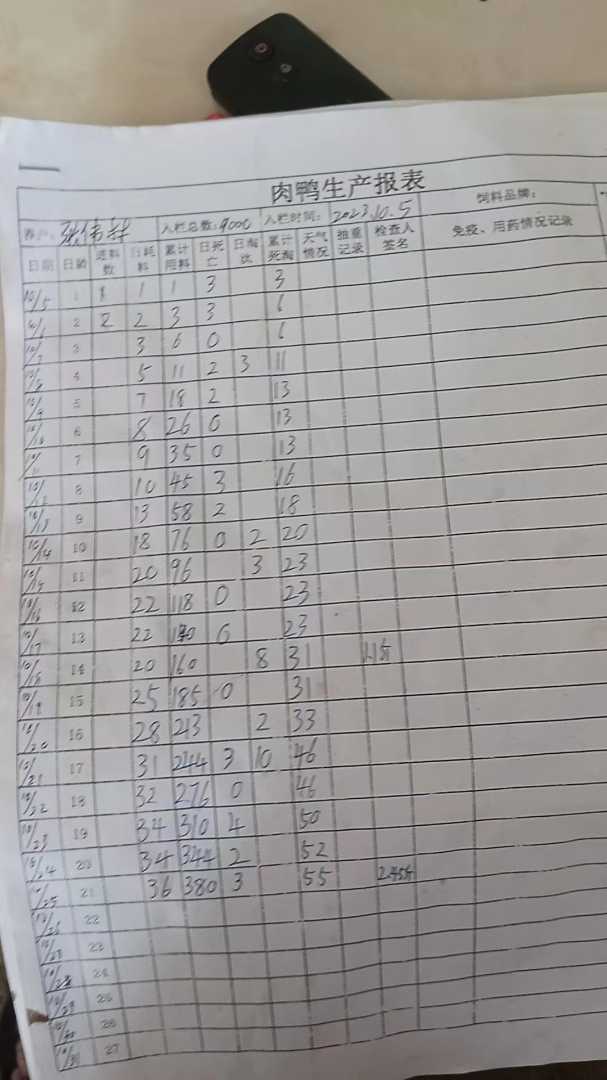 肉鸭生产报表
养户: 张伟 入栏总数: 9000 入栏时间: 2023.10.5 饲料品牌:
日期 日龄 进料数 日耗料 累计用料 日死亡 日淘汰 累计死淘 天气情况 抽重记录 检查人签名 免疫、用药情况记录
10/5 1 1 1 3 3
10/6 2 2 2 3 3 6
10/7 3 3 6 0 6
10/8 4 5 11 2 3 11
10/9 5 7 18 2 13
10/10 6 8 26 0 13
10/11 7 9 35 0 13
10/12 8 10 45 3 16
10/13 9 13 58 2 18
10/14 10 18 76 0 2 20
10/15 11 20 96 3 23
10/16 12 22 118 0 23
10/17 13 22 140 0 23
10/18 14 20 160 8 31
10/19 15 25 185 0 31
10/20 16 28 213 2 33
10/21 17 31 244 3 10 46
10/22 18 32 276 0 46
10/23 19 34 310 4 50
10/24 20 34 344 2 52
10/25 21 36 380 3 55
10/26 22
10/27 23
10/28 24
10/29 25
10/30 26
10/31 27